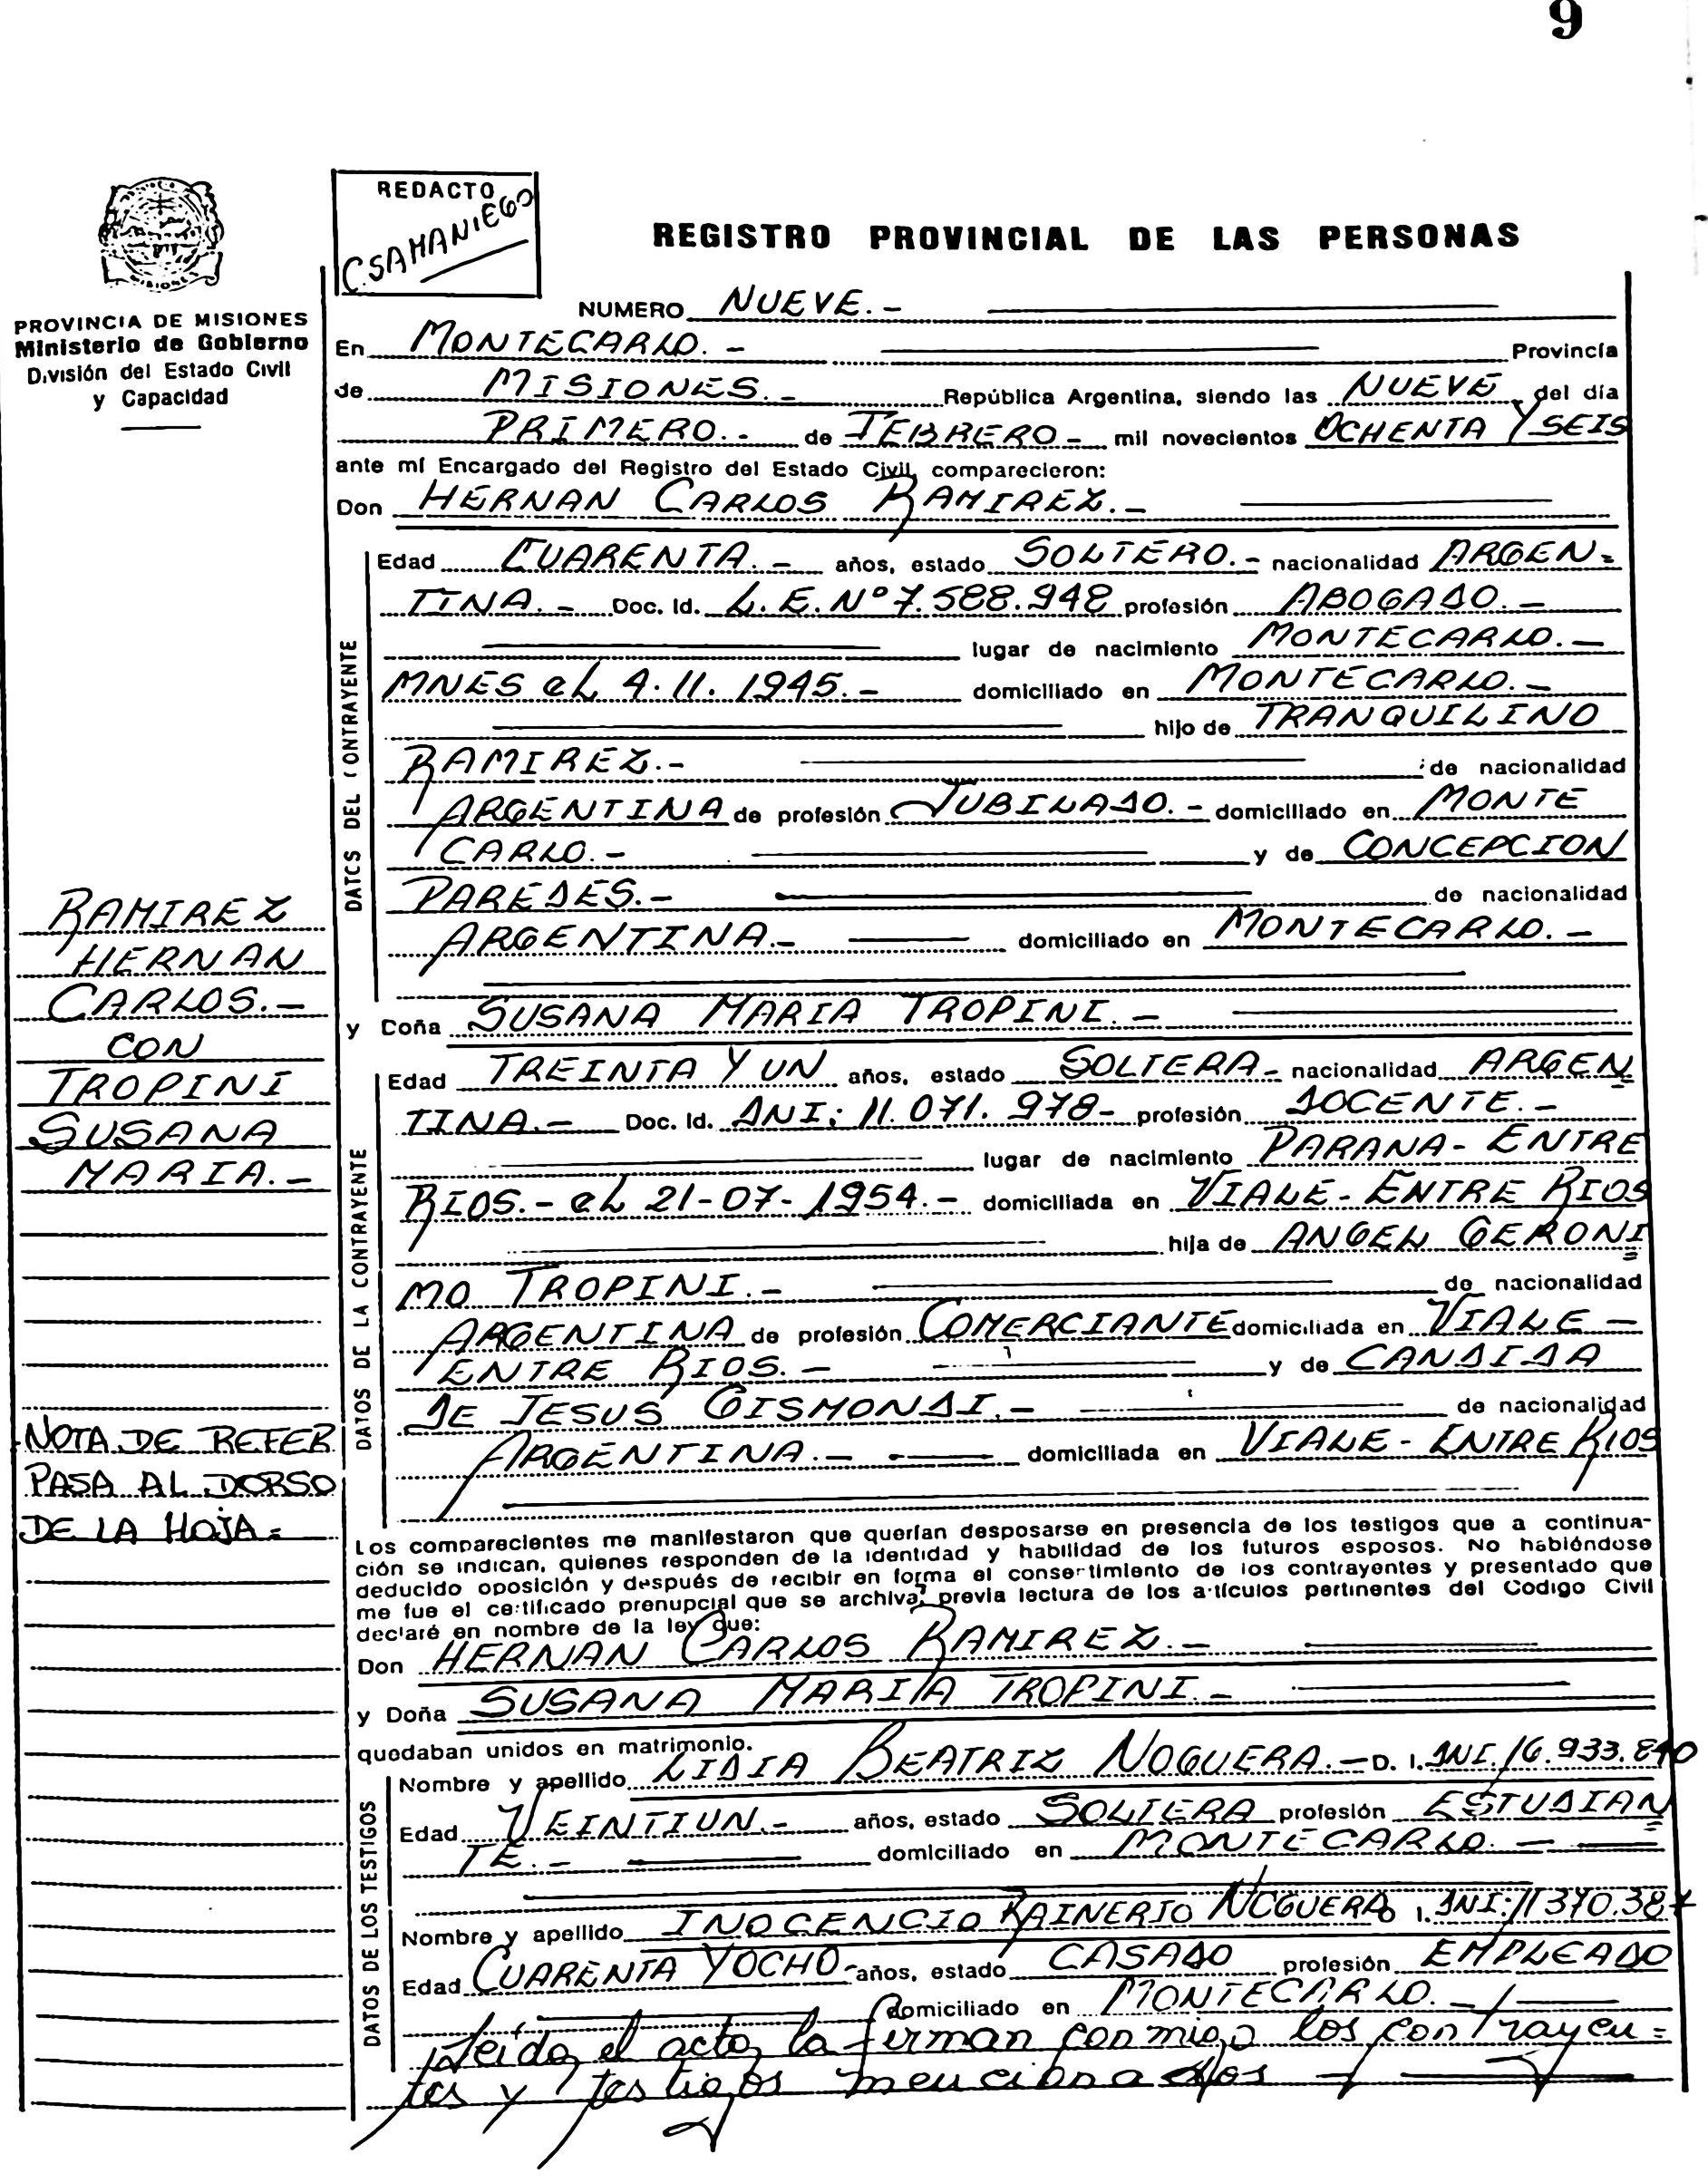 9
REDACTO
C. SAMANIEGO
REGISTRO PROVINCIAL DE LAS PERSONAS
PROVINCIA DE MISIONES
Ministerio de Gobierno
División del Estado Civil
y Capacidad
NUMERO NUEVE.-
En MONTECARLO.- Provincia
de MISIONES.- República Argentina, siendo las NUEVE del día
PRIMERO.- de FEBRERO- mil novecientos OCHENTA Y SEIS
ante mí Encargado del Registro del Estado Civil, comparecieron:
Don HERNAN CARLOS RAMIREZ.-
DATOS DEL CONTRAYENTE
Edad CUARENTA.- años, estado SOLTERO.- nacionalidad ARGEN=
TINA.- Doc. Id. L.E.Nº 7.588.948 profesión ABOGADO.-
lugar de nacimiento MONTECARLO.-
MNES el 4.11.1945.- domiciliado en MONTECARLO.-
hijo de TRANQUILINO
RAMIREZ.- de nacionalidad
ARGENTINA de profesión JUBILADO.- domiciliado en MONTE
CARLO.- y de CONCEPCION
PAREDES.- de nacionalidad
ARGENTINA.- domiciliado en MONTECARLO.-
y Doña SUSANA MARIA TROPINI.-
DATOS DE LA CONTRAYENTE
Edad TREINTA Y UN años, estado SOLTERA- nacionalidad ARGEN=
TINA.- Doc. Id. DNI: 11.071.978- profesión DOCENTE.-
lugar de nacimiento PARANA- ENTRE
RIOS.- el 21-07-1954.- domiciliada en VIALE- ENTRE RIOS
hija de ANGEL GERONI=
MO TROPINI.- de nacionalidad
ARGENTINA de profesión COMERCIANTE domiciliada en VIALE-
ENTRE RIOS.- y de CANDIDA
DE JESUS GISMONDI.- de nacionalidad
ARGENTINA.- domiciliada en VIALE- ENTRE RIOS
RAMIREZ
HERNAN
CARLOS.-
CON
TROPINI
SUSANA
MARIA.-
NOTA DE REFER
PASA AL DORSO
DE LA HOJA=
Los comparecientes me manifestaron que querían desposarse en presencia de los testigos que a continua-
ción se indican, quienes responden de la identidad y habilidad de los futuros esposos. No habiéndose
deducido oposición y después de recibir en forma el consertimiento de los contrayentes y presentado que
me fue el certificado prenupcial que se archiva, previa lectura de los artículos pertinentes del Codigo Civil
declaré en nombre de la ley que:
Don HERNAN CARLOS RAMIREZ.-
y Doña SUSANA MARIA TROPINI.-
quedaban unidos en matrimonio.
DATOS DE LOS TESTIGOS
Nombre y apellido LIDIA BEATRIZ NOGUERA.- D. I. DNI. 16.933.840
Edad VEINTIUN.- años, estado SOLTERA profesión ESTUDIAN=
TE.- domiciliado en MONTECARLO.-
Nombre y apellido INOCENCIO RAINERIO NOGUERA D. I. DNI: 11370.387
Edad CUARENTA Y OCHO- años, estado CASADO profesión EMPLEADO
domiciliado en MONTECARLO.-
Leida el acta, la firman conmigo los contrayen=
tes y testigos mencionados